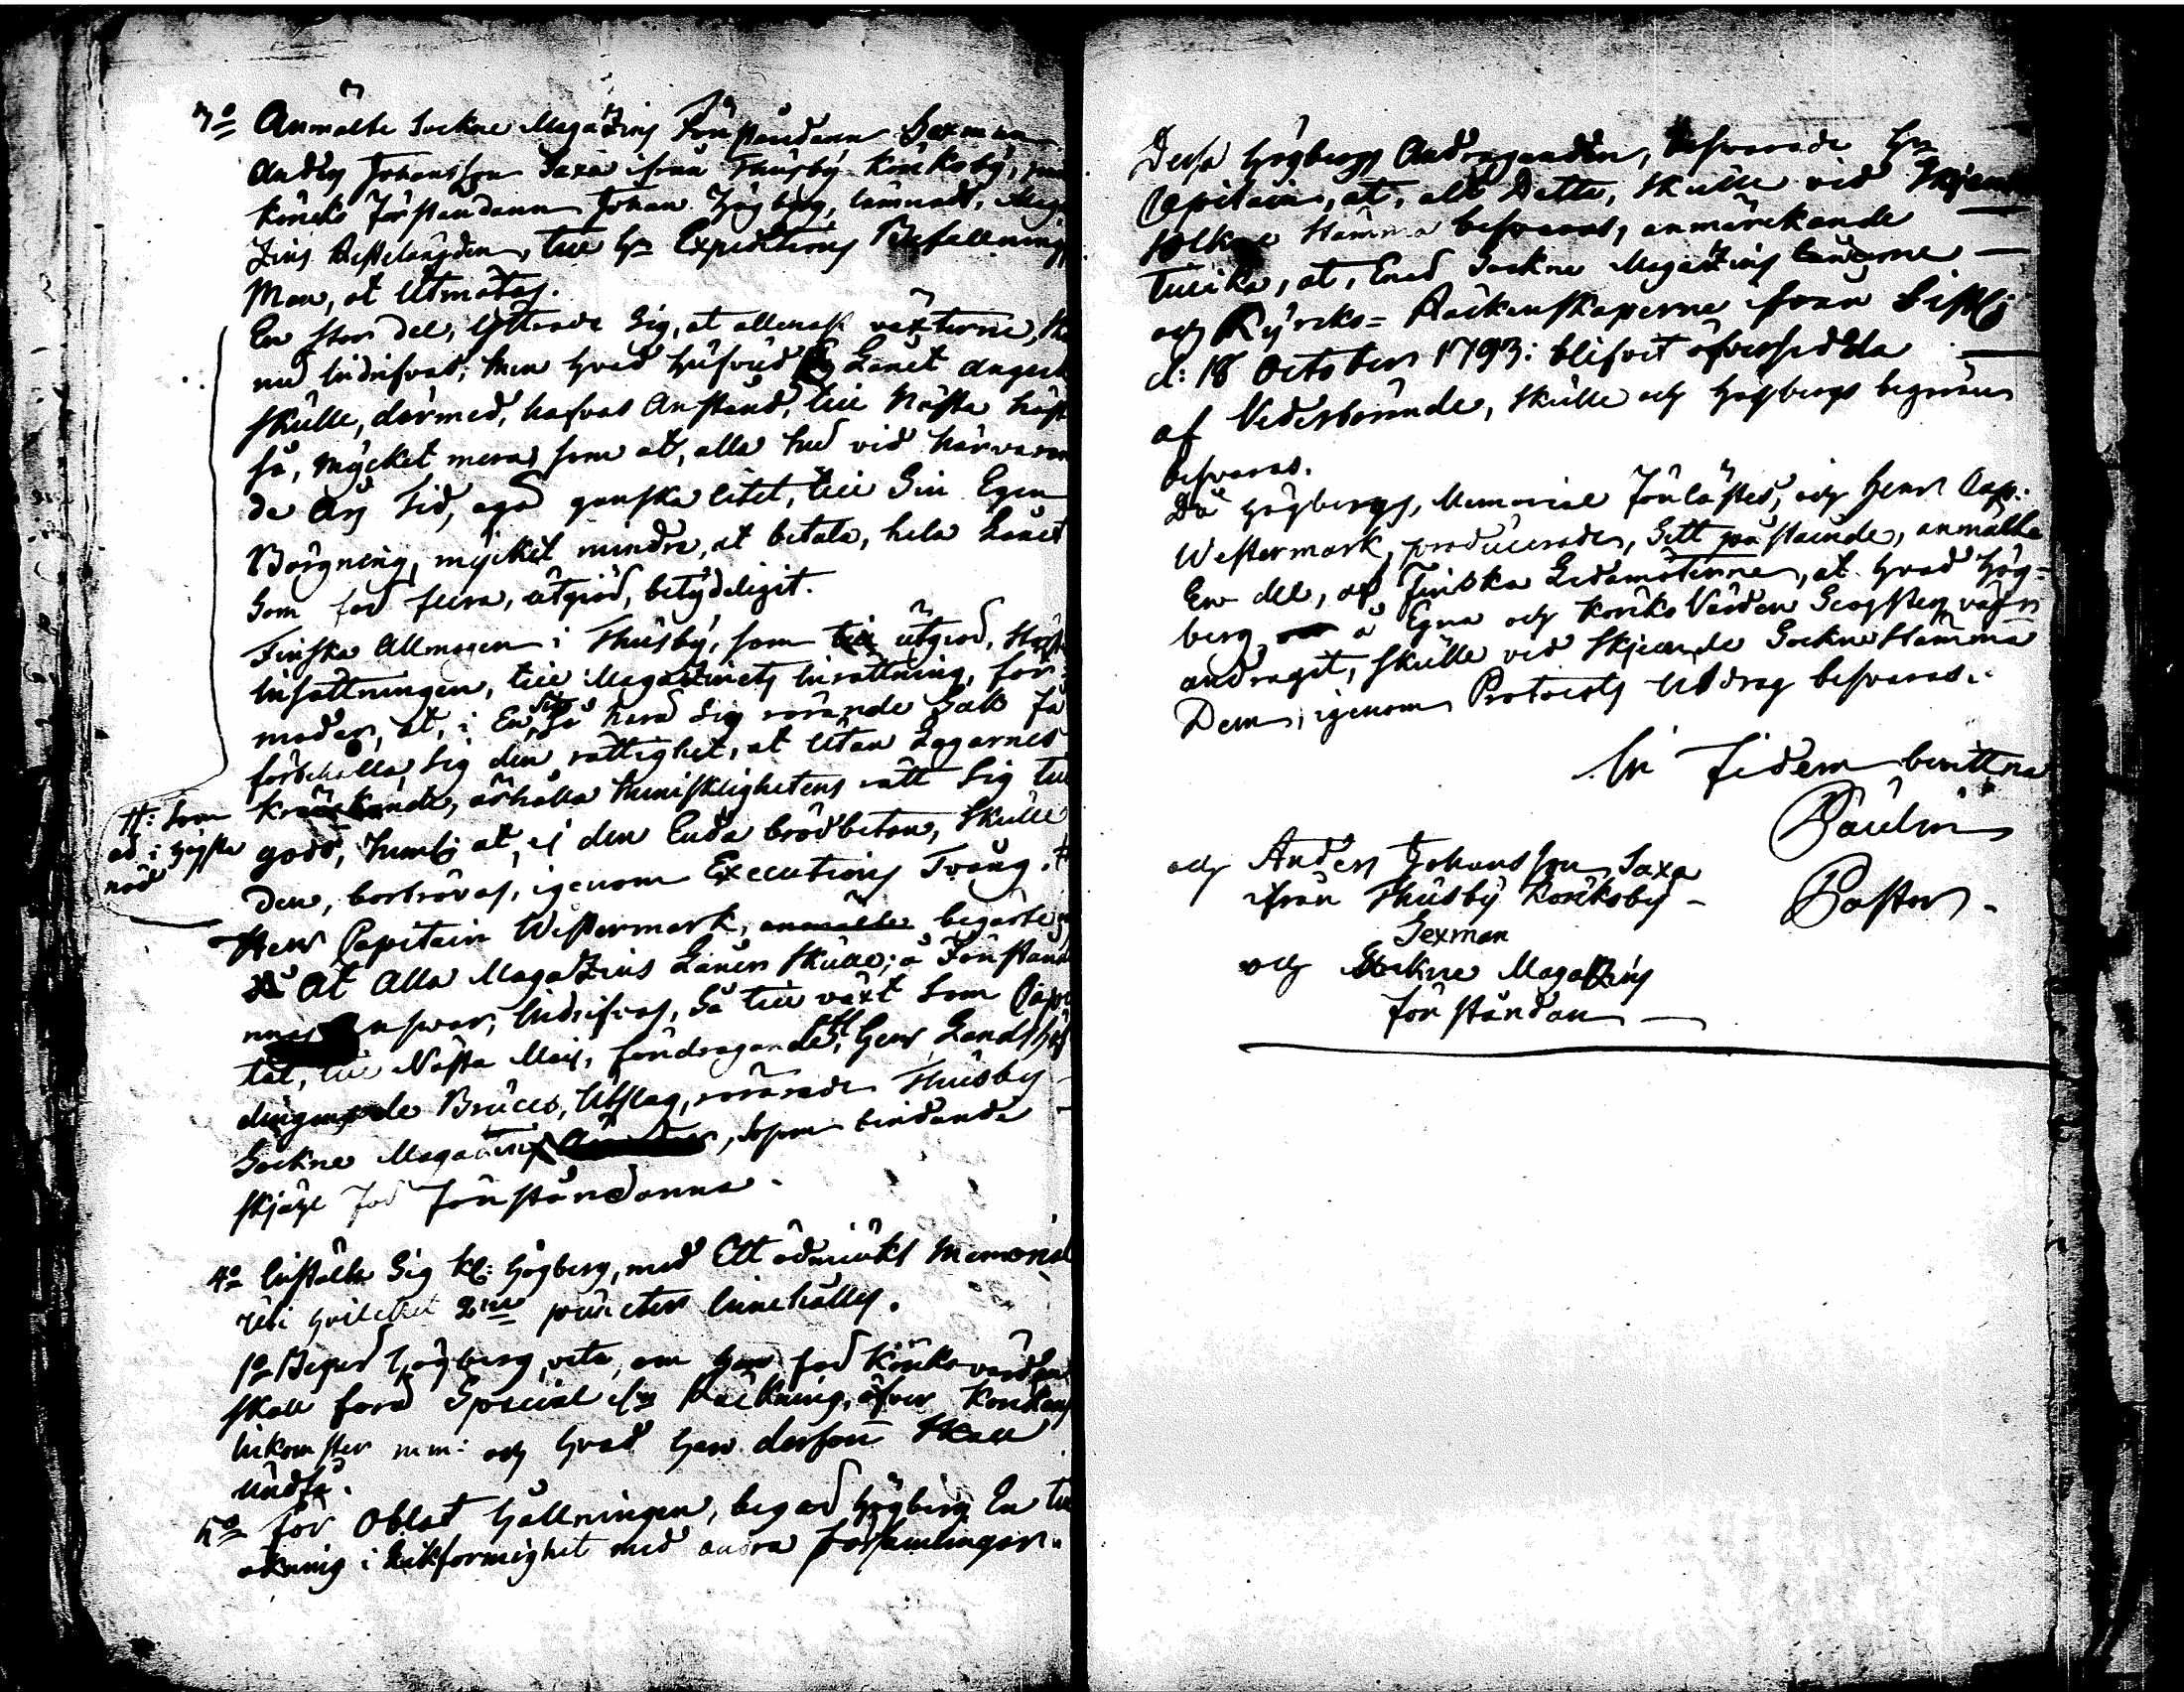 3o Anmälte Sockne Magazins Förståndaren Sexman
Anders Johansson Saxa ifrån Thusby Körckoby, samt
körcko Förståndaren Johan Högberg, lämnadt, Maga
zins Restelängden, till Hr Expeditions Befallnings
Man, at Utmätas.
En stor del, yttrade Sig, at allenast växterne, skulle
nu indrifvas; men hvad hufvud Lånet angick
skulle, därmed, hafvas Anstånd, till Nästa höst
så, mycket mera, som at, alla hud vid närvaran
de Års tid, ega ganska litet, till Sin Egen
Bärgning, mycket mindre, at betala, hela Lånet
Som för flera, utgiör, betydeligit.
Finska Allmogen i Thusby, som utgiör, största
Insättningen, till Magazinets Inrättning, för-
modar, at, i En, så hård Sig rörande Sak få
förbehålla, Sig den rättighet, at Utan Lagarnes
kränkande, ärhålla Menisklighetens rätt Sig till
godo, Nemli at, ej den Enda brödbetan, Skulle
den, bortrövas, igenom Executions Tvång. #
#: Som
är i högsta
nöd
Herr Capitain Westermark, anmälte begärte
At Alla Magazins Lånen Skulle, å Förstånda
nnas answar, Indrifvas, Så till växt Som Capi
tal, till Nästa Maij, föredragande, Herr Landshöf
dingen de Bruces, Utslag, rörande Thusby
Sockne Magazins, Såsom bindande
skjäl för Förståndarne.
4o Instälte Sig Kl: Högberg, med Ett ödmiukt Memorial
uti hvilcket 2ne puncter Innehålles.
1o Begärd Högberg, veta, om han för Körcko vården
skall föra Special Räkning, öfver Körckans
Inkomster m.m: och hvad han derföre skall
Undfå.
5o för Oblat Hållningen, begärd Högberg En till
ökning i Likformighet med andra församlingar.
Dessa Högbergs Andraganden, besvarade Hr
Capitain, at, alt Detta, skulle vid Skjeande
Sockne Stämma besvaras, anmärckande
tillika, at, Emed Sockne Magazins länderne
och Kyrcko-Räckenskaperne ifrån Sistl:
d: 18 October 1793: blifvit öfversedda
af Vederbörande, skulle och Högbergs begäran
besvaras.
Då Högbergs, Memorial Förlästes, och Herr Cap.
Westermark, producerade, Sitt påstående, anmälte
En del, af Finska Ledamöterne, at hvad Hög-
berg å Egna och körko Vården vägn
andragit, skulle vid Skjeande Sockne Stämma
Dem, igenom Protocolls Utdrag besvaras.
In Fidem
Paulin
Pastor.
och Anders Johansson Saxa
ifrån Thusby Körckoby
Sexman
och Sockne Magazins
förståndare